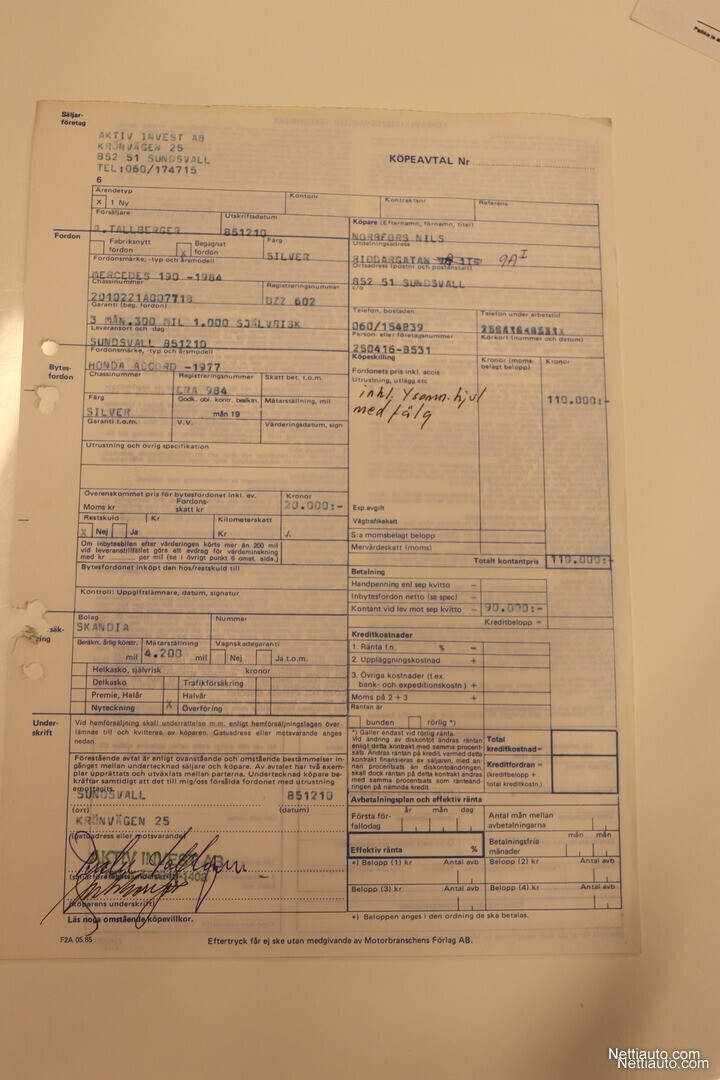 Säljar-
företag
AKTIV INVEST AB
KRÖNVÄGEN 25
852 51 SUNDSVALL
TEL:060/174715
6
KÖPEAVTAL Nr
Ärendetyp
X 1 Ny
Kontonr
Kontraktsnr
Referens
Försäljare
Utskriftsdatum
P.TALLBERGER
851210
Fordon
Fabriksnytt fordon
X Begagnat fordon
Färg
SILVER
Fordonsmärke, -typ och årsmodell
MERCEDES 190 -1984
Chassinummer
Registreringsnummer
2010221A007718
DZZ 602
Garanti (beg. fordon)
3 MÅN.300 MIL 1.000 SJÄLVRISK
Leveransort och -dag
SUNDSVALL 851210
Köpare (Efternamn, förnamn, titel)
NORRFORS NILS
Utdelningsadress
RIDDARGATAN 9A I
Ortsadress (postnr och postanstalt)
852 51 SUNDSVALL
c/o
Telefon, bostaden
Telefon under arbetstid
060/154839
Person- eller företagsnummer
Körkort (nummer och datum)
250416-8531
Bytes-
fordon
Fordonsmärke, -typ och årsmodell
HONDA ACCORD -1977
Chassinummer
Registreringsnummer
Skatt bet. t.o.m.
CRA 984
Färg
Godk. obl. kontr. besiktn.
Mätarställning, mil
SILVER
mån 19
Garanti t.o.m.
V.V.
Värderingsdatum, sign
Utrustning och övrig specifikation
Överenskommet pris för bytesfordonet inkl. ev.
Kronor
Moms kr
Fordons-
skatt kr
20.000:-
Restskuld
Kr
Kilometerskatt
X Nej Ja
Kr /.
Om inbytesbilen efter värderingen körts mer än 200 mil
vid leveranstillfället görs ett avdrag för värdeminskning
med kr per mil (se i övrigt punkt 6 omst. sida.)
Bytesfordonet inköpt den hos/restskuld till
Kontroll: Uppgiftslämnare, datum, signatur
Köpeskilling
Kronor (moms-
belagt belopp)
Kronor
Fordonets pris inkl. accis
110.000:-
Utrustning, utlägg etc
inkl. 4 somm.hjul
med fälg
Exp.avgift
Vägtrafikskatt
S:a momsbelagt belopp
Mervärdeskatt (moms)
Totalt kontantpris
110.000:-
Betalning
Handpenning enl sep kvitto −
Inbytesfordon netto (se spec) −
Kontant vid lev mot sep kvitto − 90.000:-
Kreditbelopp =
Bolag
Nummer
SKANDIA
Beräkn. årlig körstr.
Mätarställning
Vagnskadegaranti
mil
4.200 mil
Nej
Ja t.o.m.
Helkasko, självrisk kronor
Delkasko
Trafikförsäkring
Premie, Helår
Halvår
Nyteckning
X Överföring
Kreditkostnader
1. Ränta f.n. % −
2. Uppläggningskostnad +
3. Övriga kostnader (t.ex.
bank- och expeditionskostn.) +
Moms på 2 + 3 +
Räntan är
bunden
rörlig *)
*) Gäller endast vid rörlig ränta.
Vid ändring av diskontot ändras räntan
enligt detta kontrakt med samma procent-
sats. Ändras räntan på kredit, varmed detta
kontrakt finansieras av säljaren, med an-
nan procentsats än diskontoändringen,
skall dock räntan på detta kontrakt ändras
med samma procentsats som ränteänd-
ringen på nämnda kredit.
Total
kreditkostnad=
Kreditfordran=
(kreditbelopp +
total kreditkostn.)
Under-
skrift
Vid hemförsäljning skall underrättelse m.m. enligt hemförsäljningslagen över-
lämnas till och kvitteras av köparen. Gatuadress eller motsvarande anges
nedan.
Förestående avtal är enligt ovanstående och omstående bestämmelser in-
gånget mellan undertecknad säljare och köpare. Av avtalet har två exem-
plar upprättats och utväxlats mellan parterna. Undertecknad köpare be-
kräftar samtidigt att det till mig/oss försålda fordonet med utrustning
emottagits.
SUNDSVALL
851210
(ort)
(datum)
KRÖNVÄGEN 25
(gatuadress eller motsvarande)
AKTIV INVEST AB
(köparens underskrift)
Läs noga omstående köpevillkor.
Avbetalningsplan och effektiv ränta
Första för-
fallodag
år
mån
dag
Antal mån mellan
avbetalningarna
Effektiv ränta
%
Betalningsfria
månader
mån
mån
*) Belopp (1) kr
Antal avb
Belopp (2) kr
Antal avb
Belopp (3) kr
Antal avb
Belopp (4) kr
Antal avb
*) Beloppen anges i den ordning de ska betalas.
F2A 05.85
Eftertryck får ej ske utan medgivande av Motorbranschens Förlag AB.
Nettiauto.com
Nettiauto.com